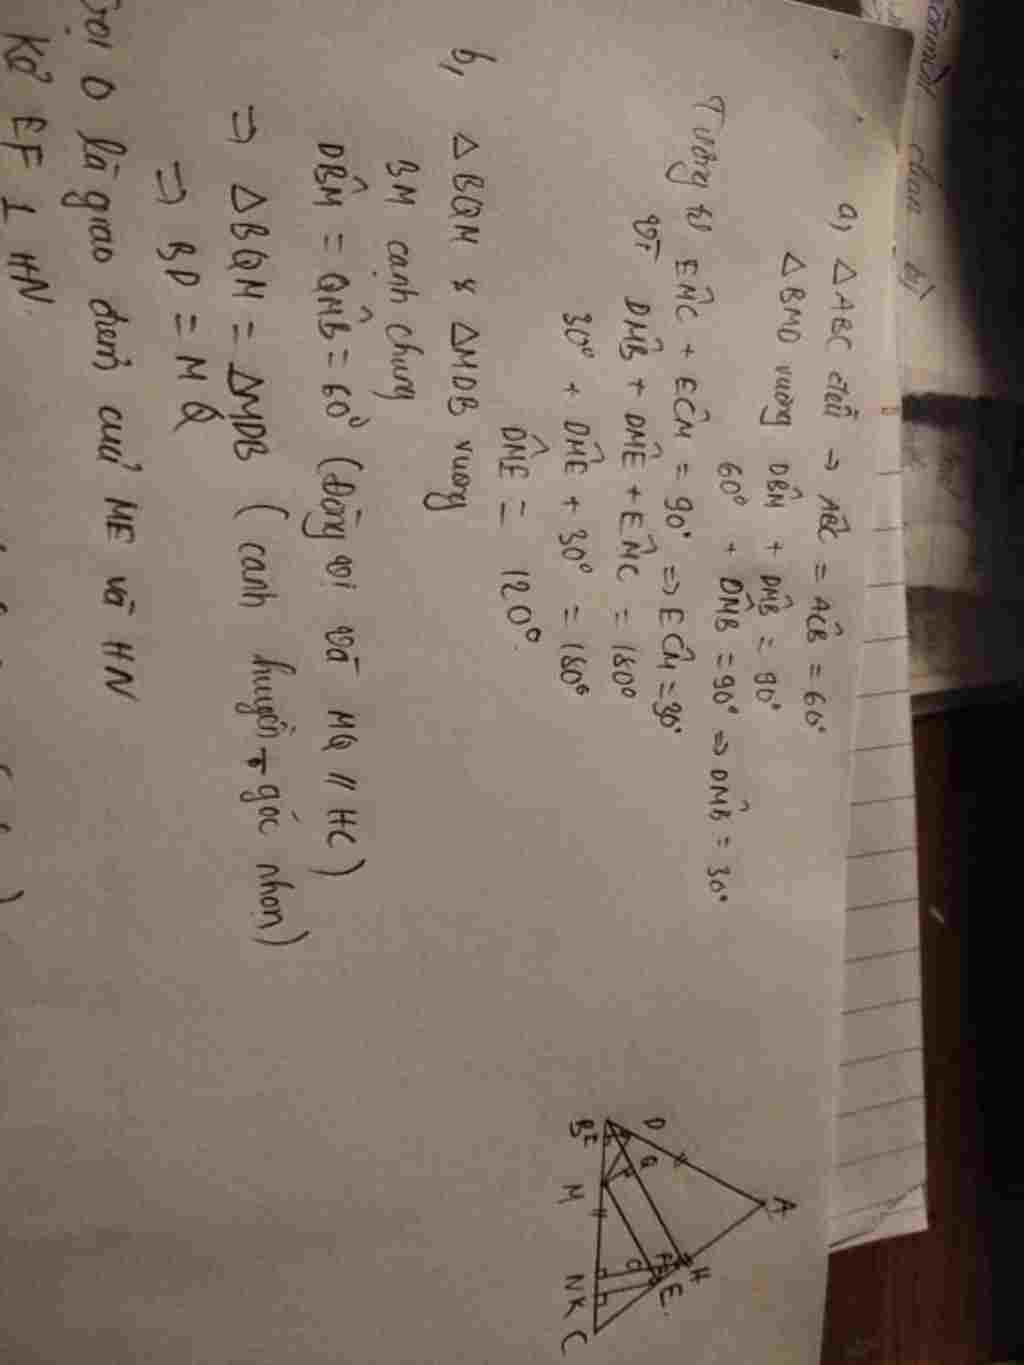 a, △ABC đều → AB̂C = AĈB = 60°
△BMD vuông DB̂M + DM̂B = 90°
60° + DM̂B = 90° => DM̂B = 30°
Tương tự EM̂C + EĈM = 90° => EĈM = 30°
vì DM̂B + DM̂E + EM̂C = 180°
30° + DM̂E + 30° = 180°
DM̂E = 120°.
b, △BQM & △MDB vuông
BM cạnh chung
DB̂M = QM̂B = 60° (Đồng vị và MQ // HC)
=> △BQM = △MDB (cạnh huyền + góc nhọn)
=> BD = MQ
Gọi O là giao điểm của ME và HN
Kẻ EF ⊥ HN.
A
D
H
Q
E.
B
M
N
K
C